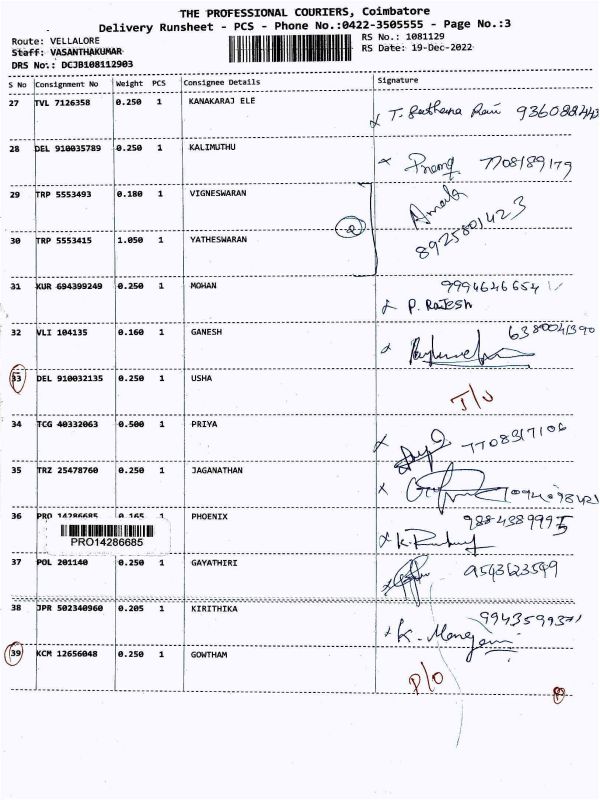 THE PROFESSIONAL COURIERS, Coimbatore
Delivery Runsheet - PCS - Phone No.:0422-3505555 - Page No.:3
Route: VELLALORE
RS No.: 1081129
Staff: VASANTHAKUMAR
RS Date: 19-Dec-2022
DRS No.: DCJB108112903
S No Consignment No Weight PCS Consignee Details Signature
27 TVL 7126358 0.250 1 KANAKARAJ ELE
28 DEL 910035789 0.250 1 KALIMUTHU 7708189179
29 TRP 5553493 0.180 1 VIGNESWARAN Amala
30 TRP 5553415 1.050 1 YATHESWARAN 8925801423
31 KUR 694399249 0.250 1 MOHAN 9994646654
P. RAJESH
32 VLI 104135 0.160 1 GANESH 6380041390
33 DEL 910032135 0.250 1 USHA I/U
34 TCG 40332063 0.500 1 PRIYA 7708317106
35 TRZ 25478760 0.250 1 JAGANATHAN
36 PRO 14286685 0.165 1 PHOENIX
PRO14286685
37 POL 201140 0.250 1 GAYATHIRI 9543623599
38 JPR 502340960 0.205 1 KIRITHIKA
39 KCM 12656048 0.250 1 GOWTHAM P/O